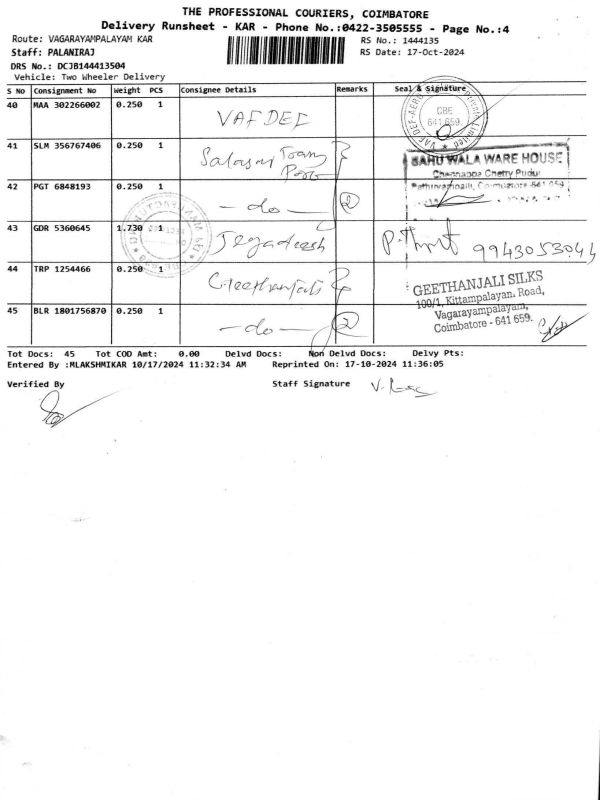 THE PROFESSIONAL COURIERS, COIMBATORE
Delivery Runsheet - KAR - Phone No.:0422-3505555 - Page No.:4
Route: VAGARAYAMPALAYAM KAR
RS No.: 1444135
Staff: PALANIRAJ
RS Date: 17-Oct-2024
DRS No.: DCJB144413504
Vehicle: Two Wheeler Delivery
S No Consignment No Weight PCS Consignee Details Remarks Seal & Signature
40 MAA 302266002 0.250 1
VAFDEF
CBE
641 659
41 SLM 356767406 0.250 1
SAHU WALA WARE HOUSE
Chennappa Chetty Pudur
42 PGT 6848193 0.250 1
- do - 2
43 GDR 5360645 1.730 1
Jegadeesh
9943053044
44 TRP 1254466 0.250 1
Geethanjali
GEETHANJALI SILKS
100/1, Kittampalayam Road,
Vagarayampalayam,
Coimbatore - 641 659.
45 BLR 1801756870 0.250 1
- do - 2
Tot Docs: 45 Tot COD Amt: 0.00 Delvd Docs: Non Delvd Docs: Delvy Pts:
Entered By :MLAKSHMIKAR 10/17/2024 11:32:34 AM Reprinted On: 17-10-2024 11:36:05
Verified By Staff Signature